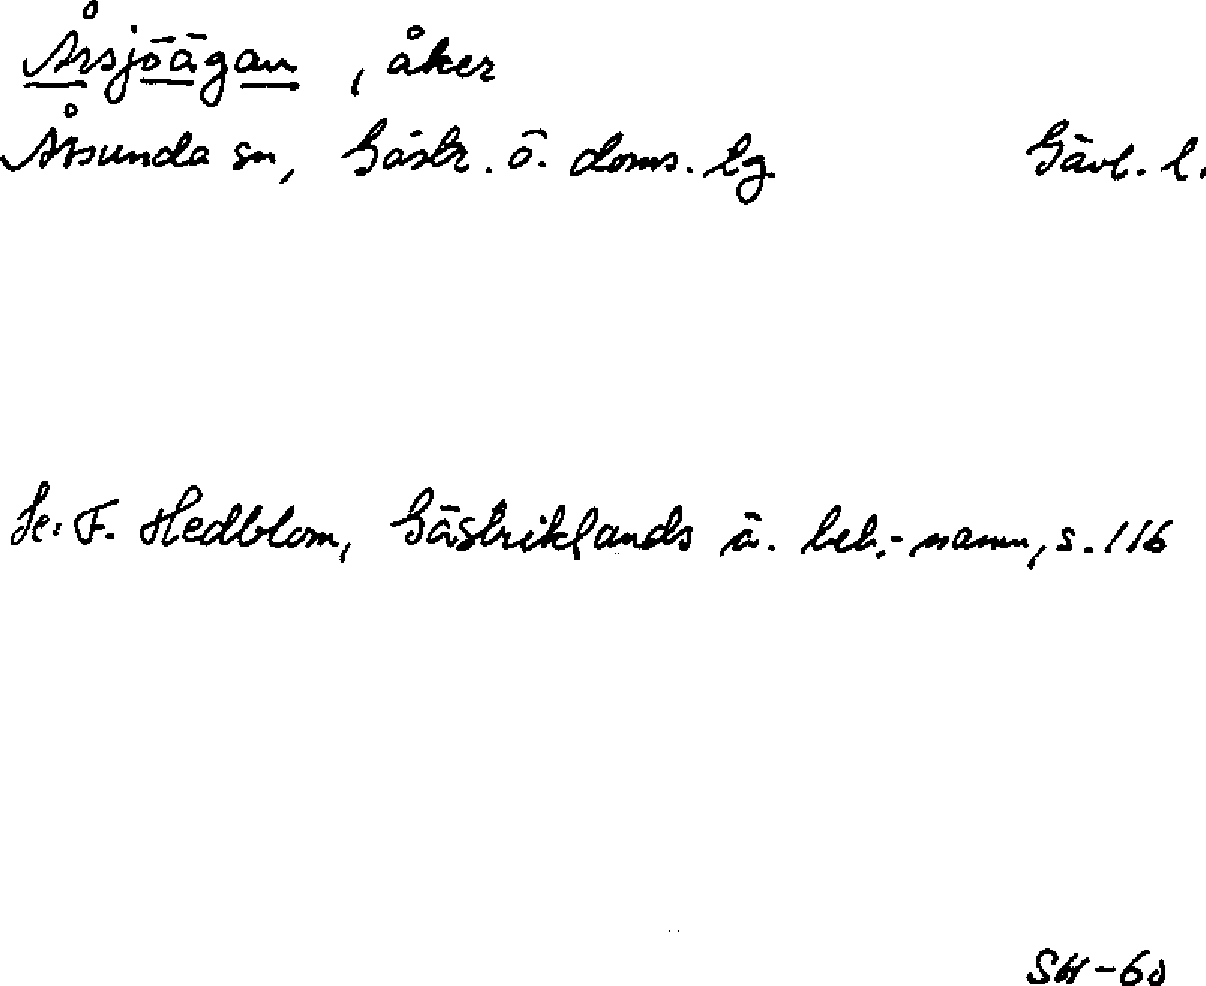 Årsjöägan, åker
Årsunda sn, Gästr. ö. doms. tg Gävl. l.
Se: F. Hedblom, Gästriklands ä. beb.-namn, s. 116
SH-60